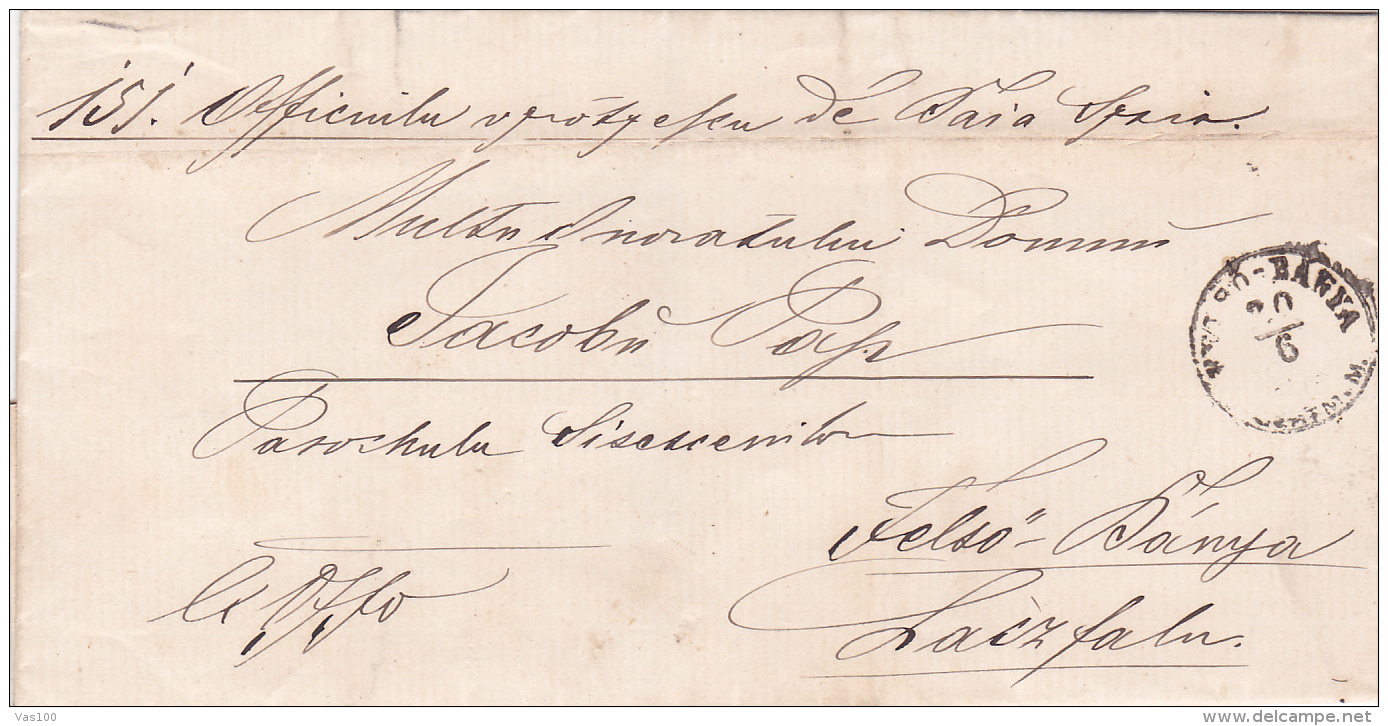 151. Officiulu vprotopescu de Baia Spria.
Multu Onoratului Domnu
Jacobu Pap
Parochulu Sisescenilor
Felső-Bánya
Láczfalu.
NAGY-BÁNYA
20/6
Vas100
delcampe.net